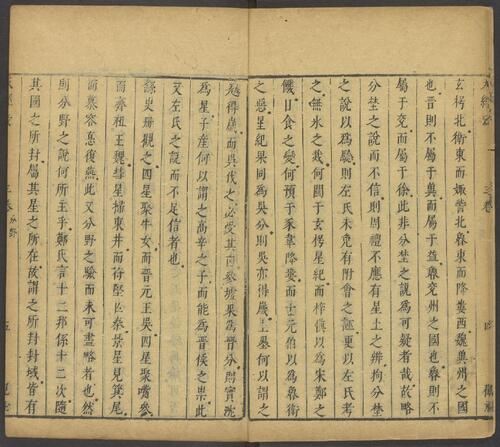 玄枵北衛東而娵訾北魯東而降婁西魏冀州之國
也晉則不屬于冀而屬于益魯兗州之國也魯則不
屬于兗而屬于徐此非分埜之說爲可疑者哉故略
分埜之說而不信則周禮不應有星土之辨拘分埜
之說以爲驗則左氏未免有附會之誣更以左氏考
之無氷之烖何關于玄枵星紀而梓愼以爲宋鄭之
饑日食之變何預于豕韋降婁而士元伯以爲魯衛
之惡星紀果同爲吳分則吳亦得歲墓何以謂之
越得歲而吳伐之必受其凶參墟果爲晉分則實沈
爲星子產何以謂之高辛之子而能爲晉侯之祟此
又左氏之說而不足信者也
史册觀之四星聚牛女而晉元王吳四星聚觜參
而齊祖王魏彗星掃東井而苻堅亡秦景星見箕尾
而慕容悳復燕此又分野之驗而未可盡略者也然
則分野之說何所主乎鄭氏言十二邦係十二次隨
其國之所封屬其星之所在故謂之所封封域皆有